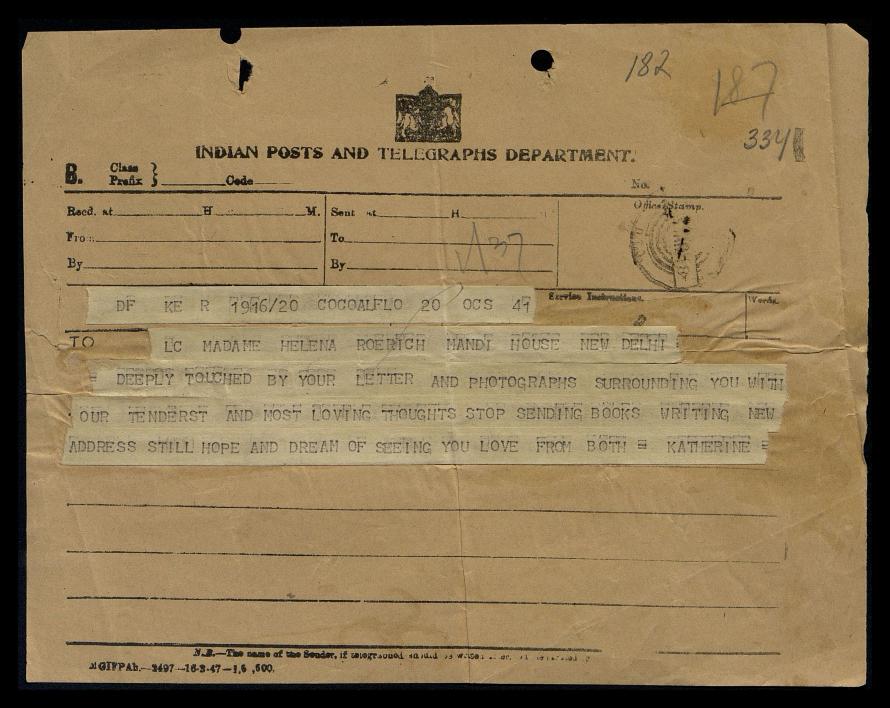 182
187
334
INDIAN POSTS AND TELEGRAPHS DEPARTMENT.
B. Class Prefix } Code
No.
Recd. at H. M. Sent at H. Office Stamp.
From To
By By
V/37
Service Instructions. Words.
DF KE R 1916/20 COCOALFLO 20 OCS 41
TO LC MADAME HELENA ROERICH MANDI HOUSE NEW DELHI
= DEEPLY TOUCHED BY YOUR LETTER AND PHOTOGRAPHS SURROUNDING YOU WITH
OUR TENDERST AND MOST LOVING THOUGHTS STOP SENDING BOOKS WRITING NEW
ADDRESS STILL HOPE AND DREAM OF SEEING YOU LOVE FROM BOTH = KATHERINE =
N.B.—The name of the Sender, if telegraphed should be
MGIFPAh.—2497—16-3-47—1,6 ,600.